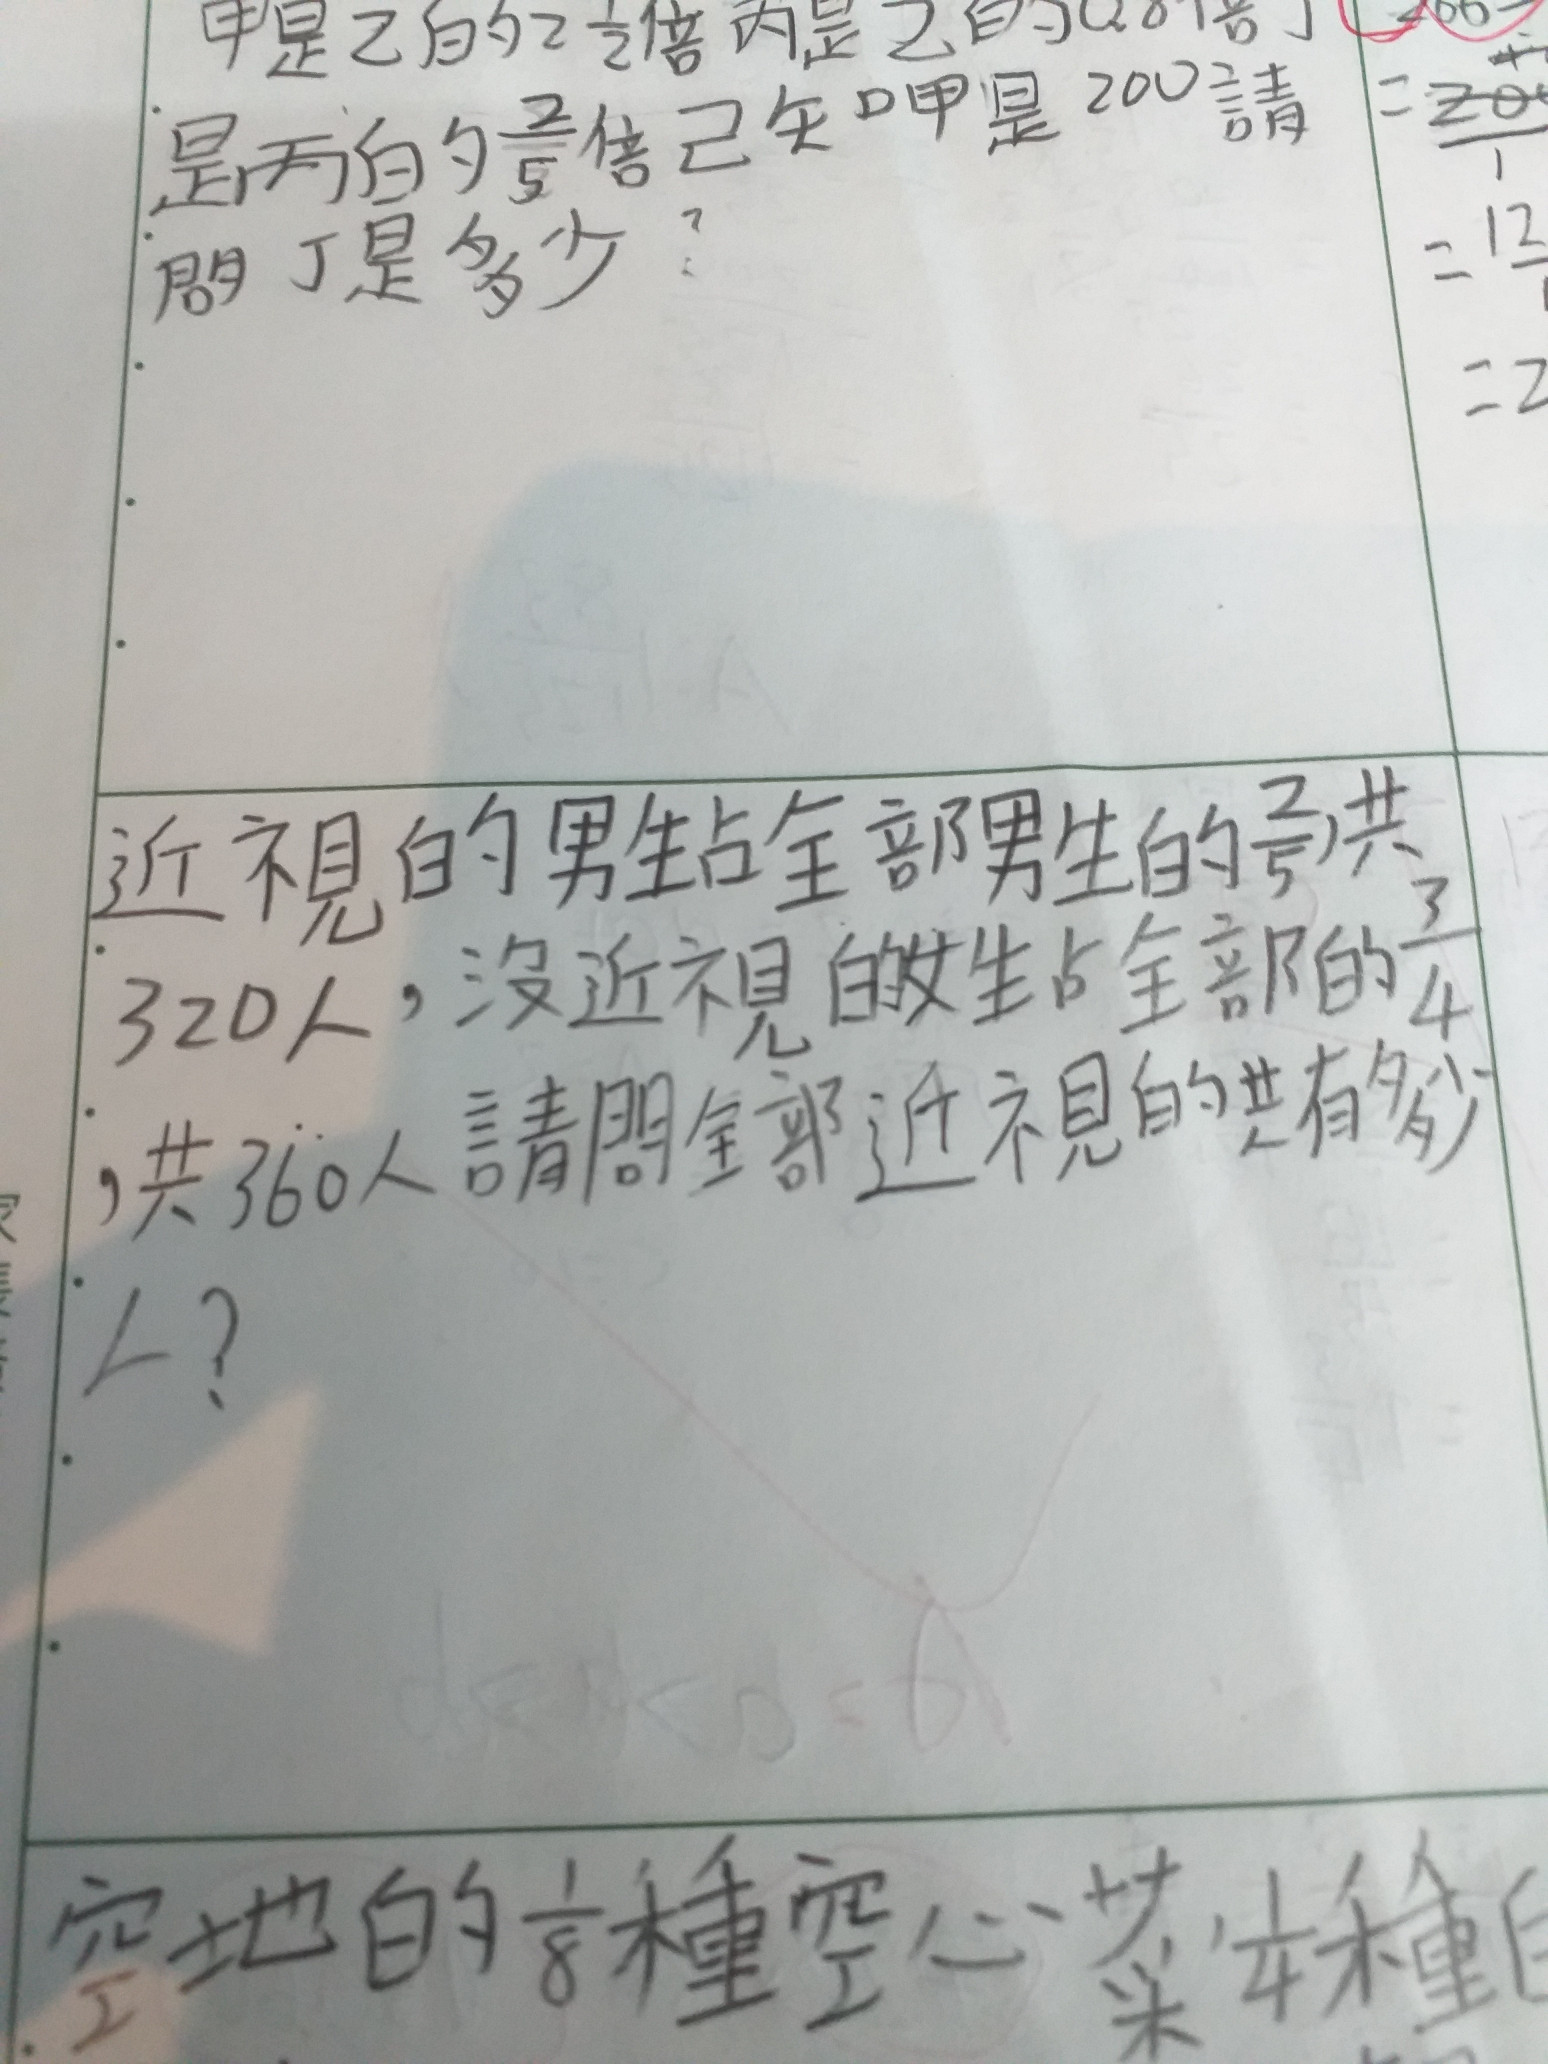 甲是乙的2 1/2倍丙是乙的0.8倍丁
是丙的2/5倍己矢口甲是200請
問丁是多少?
= 12
= 2
近視的男生占全部男生的2/5,共
320人,沒近視的女生占全部的3/4
,共360人請問全部近視的共有多少
人?
空地的1/8種空心菜,1/4種